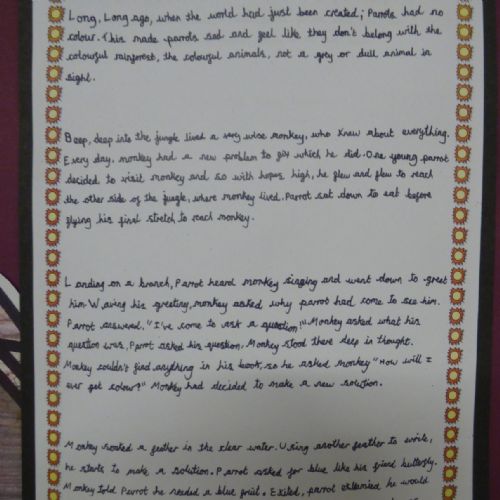 Long, Long ago, when the world had just been created; Parrots had no
colour. This made parrots sad and feel like they don't belong with the
colourful rainforest, the colourful animals, not a grey or dull animal in
sight.
Deep, deep into the jungle lived a very wise monkey, who knew about everything.
Every day, monkey had a new problem to fix which he did. One young parrot
decided to visit monkey and so with hopes high, he flew and flew to reach
the other side of the jungle, where monkey lived. Parrot sat down to eat before
flying his final stretch to reach monkey.
Landing on a branch, Parrot heard monkey singing and went down to greet
him. Waving his greeting, monkey asked why parrot had come to see him.
Parrot answered. "I've come to ask a question!" Monkey asked what his
question was, Parrot asked his question. Monkey stood there deep in thought.
Monkey couldn't find anything in his book, so he asked monkey "How will I
ever get colour?" Monkey had decided to make a new solution.
Monkey soaked a feather in the clear water. Using another feather to write,
he starts to make a solution. Parrot asked for blue like his friend butterfly.
Monkey told Parrot he needed a blue fruit. Exited, parrot exclaimed he would